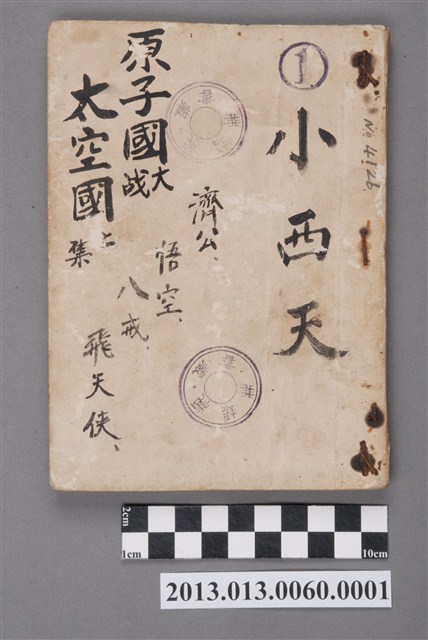 ①
小西天
No 4126
濟公、
悟空、
八戒、
飛天俠、
原子國大战
太空國上集
2cm
1cm
10cm
2013.013.0060.0001